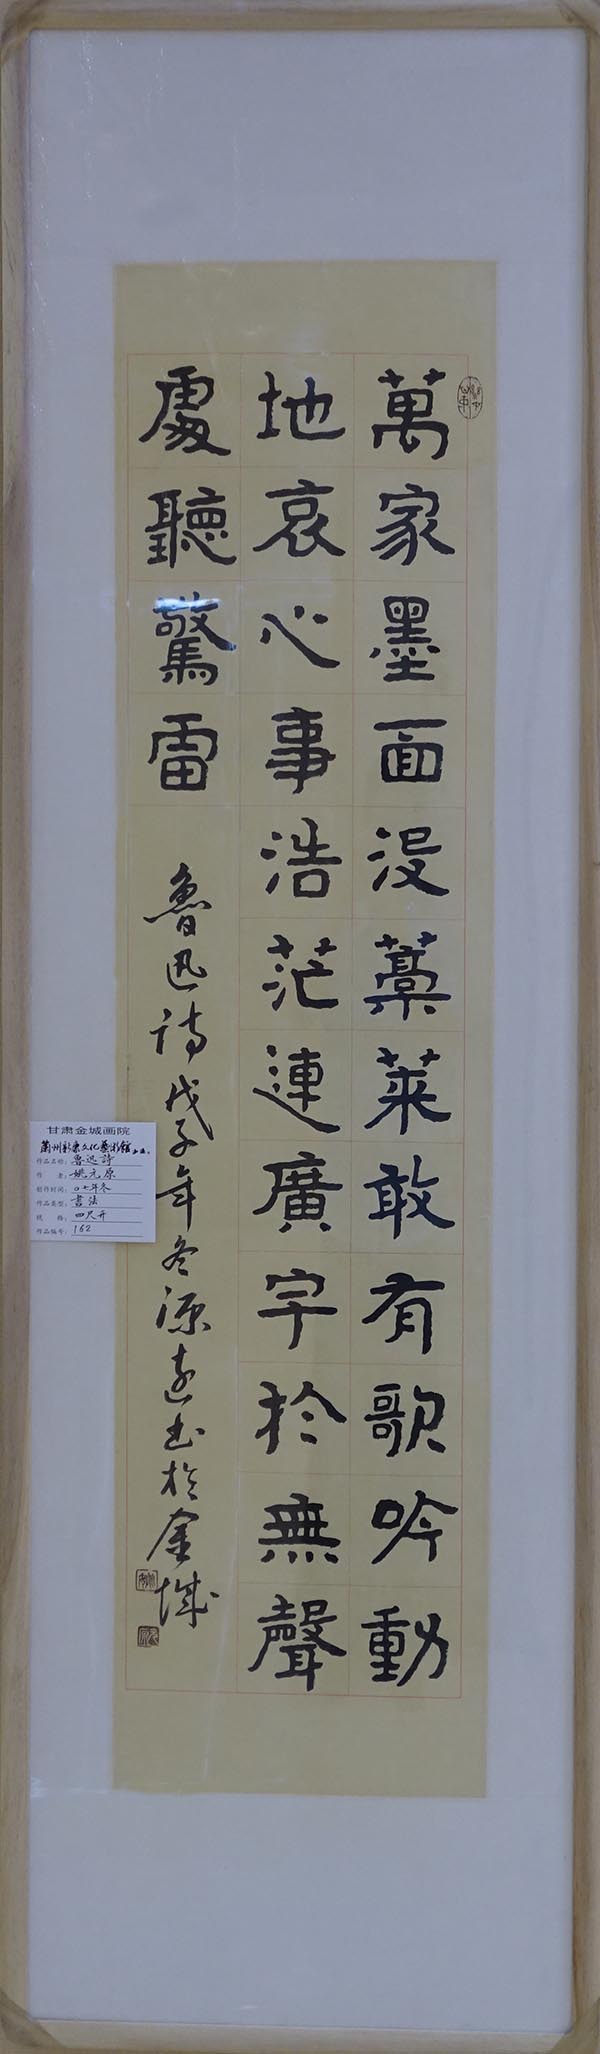 萬家墨面没藁莱敢有歌吟動
地哀心事浩茫連廣宇於無聲
處聽驚雷
魯迅詩戊子年冬源遠书於金城
甘肃金城画院
作品名称：魯迅詩
作者：姚元原
创作时间：〇七年冬
作品类型：書法
规格：四尺开
作品编号：162